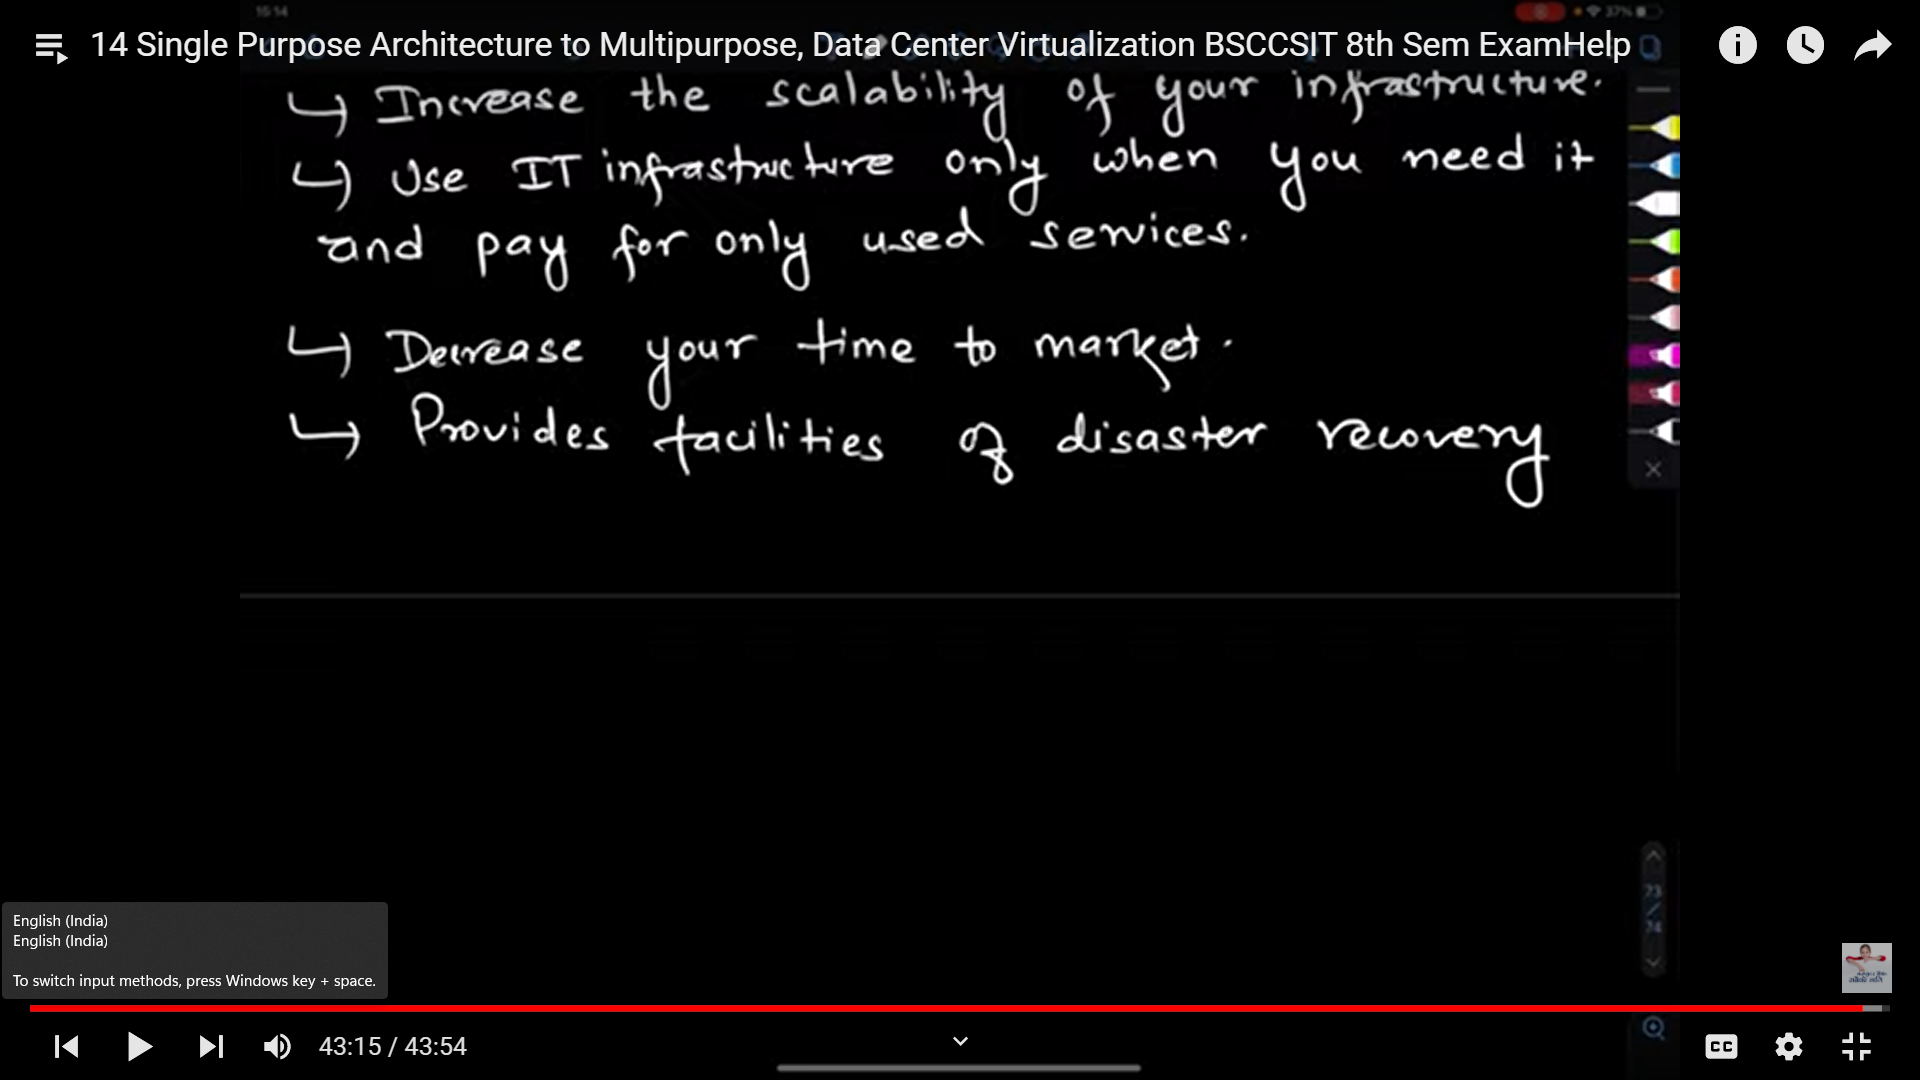 15:14
37%
14 Single Purpose Architecture to Multipurpose, Data Center Virtualization BSCCSIT 8th Sem ExamHelp
↳ Increase the scalability of your infrastructure.
↳ Use IT infrastructure only when you need it
and pay for only used services.
↳ Decrease your time to market.
↳ Provides facilities of disaster recovery
73
/
74
English (India)
English (India)
To switch input methods, press Windows key + space.
43:15 / 43:54
CC